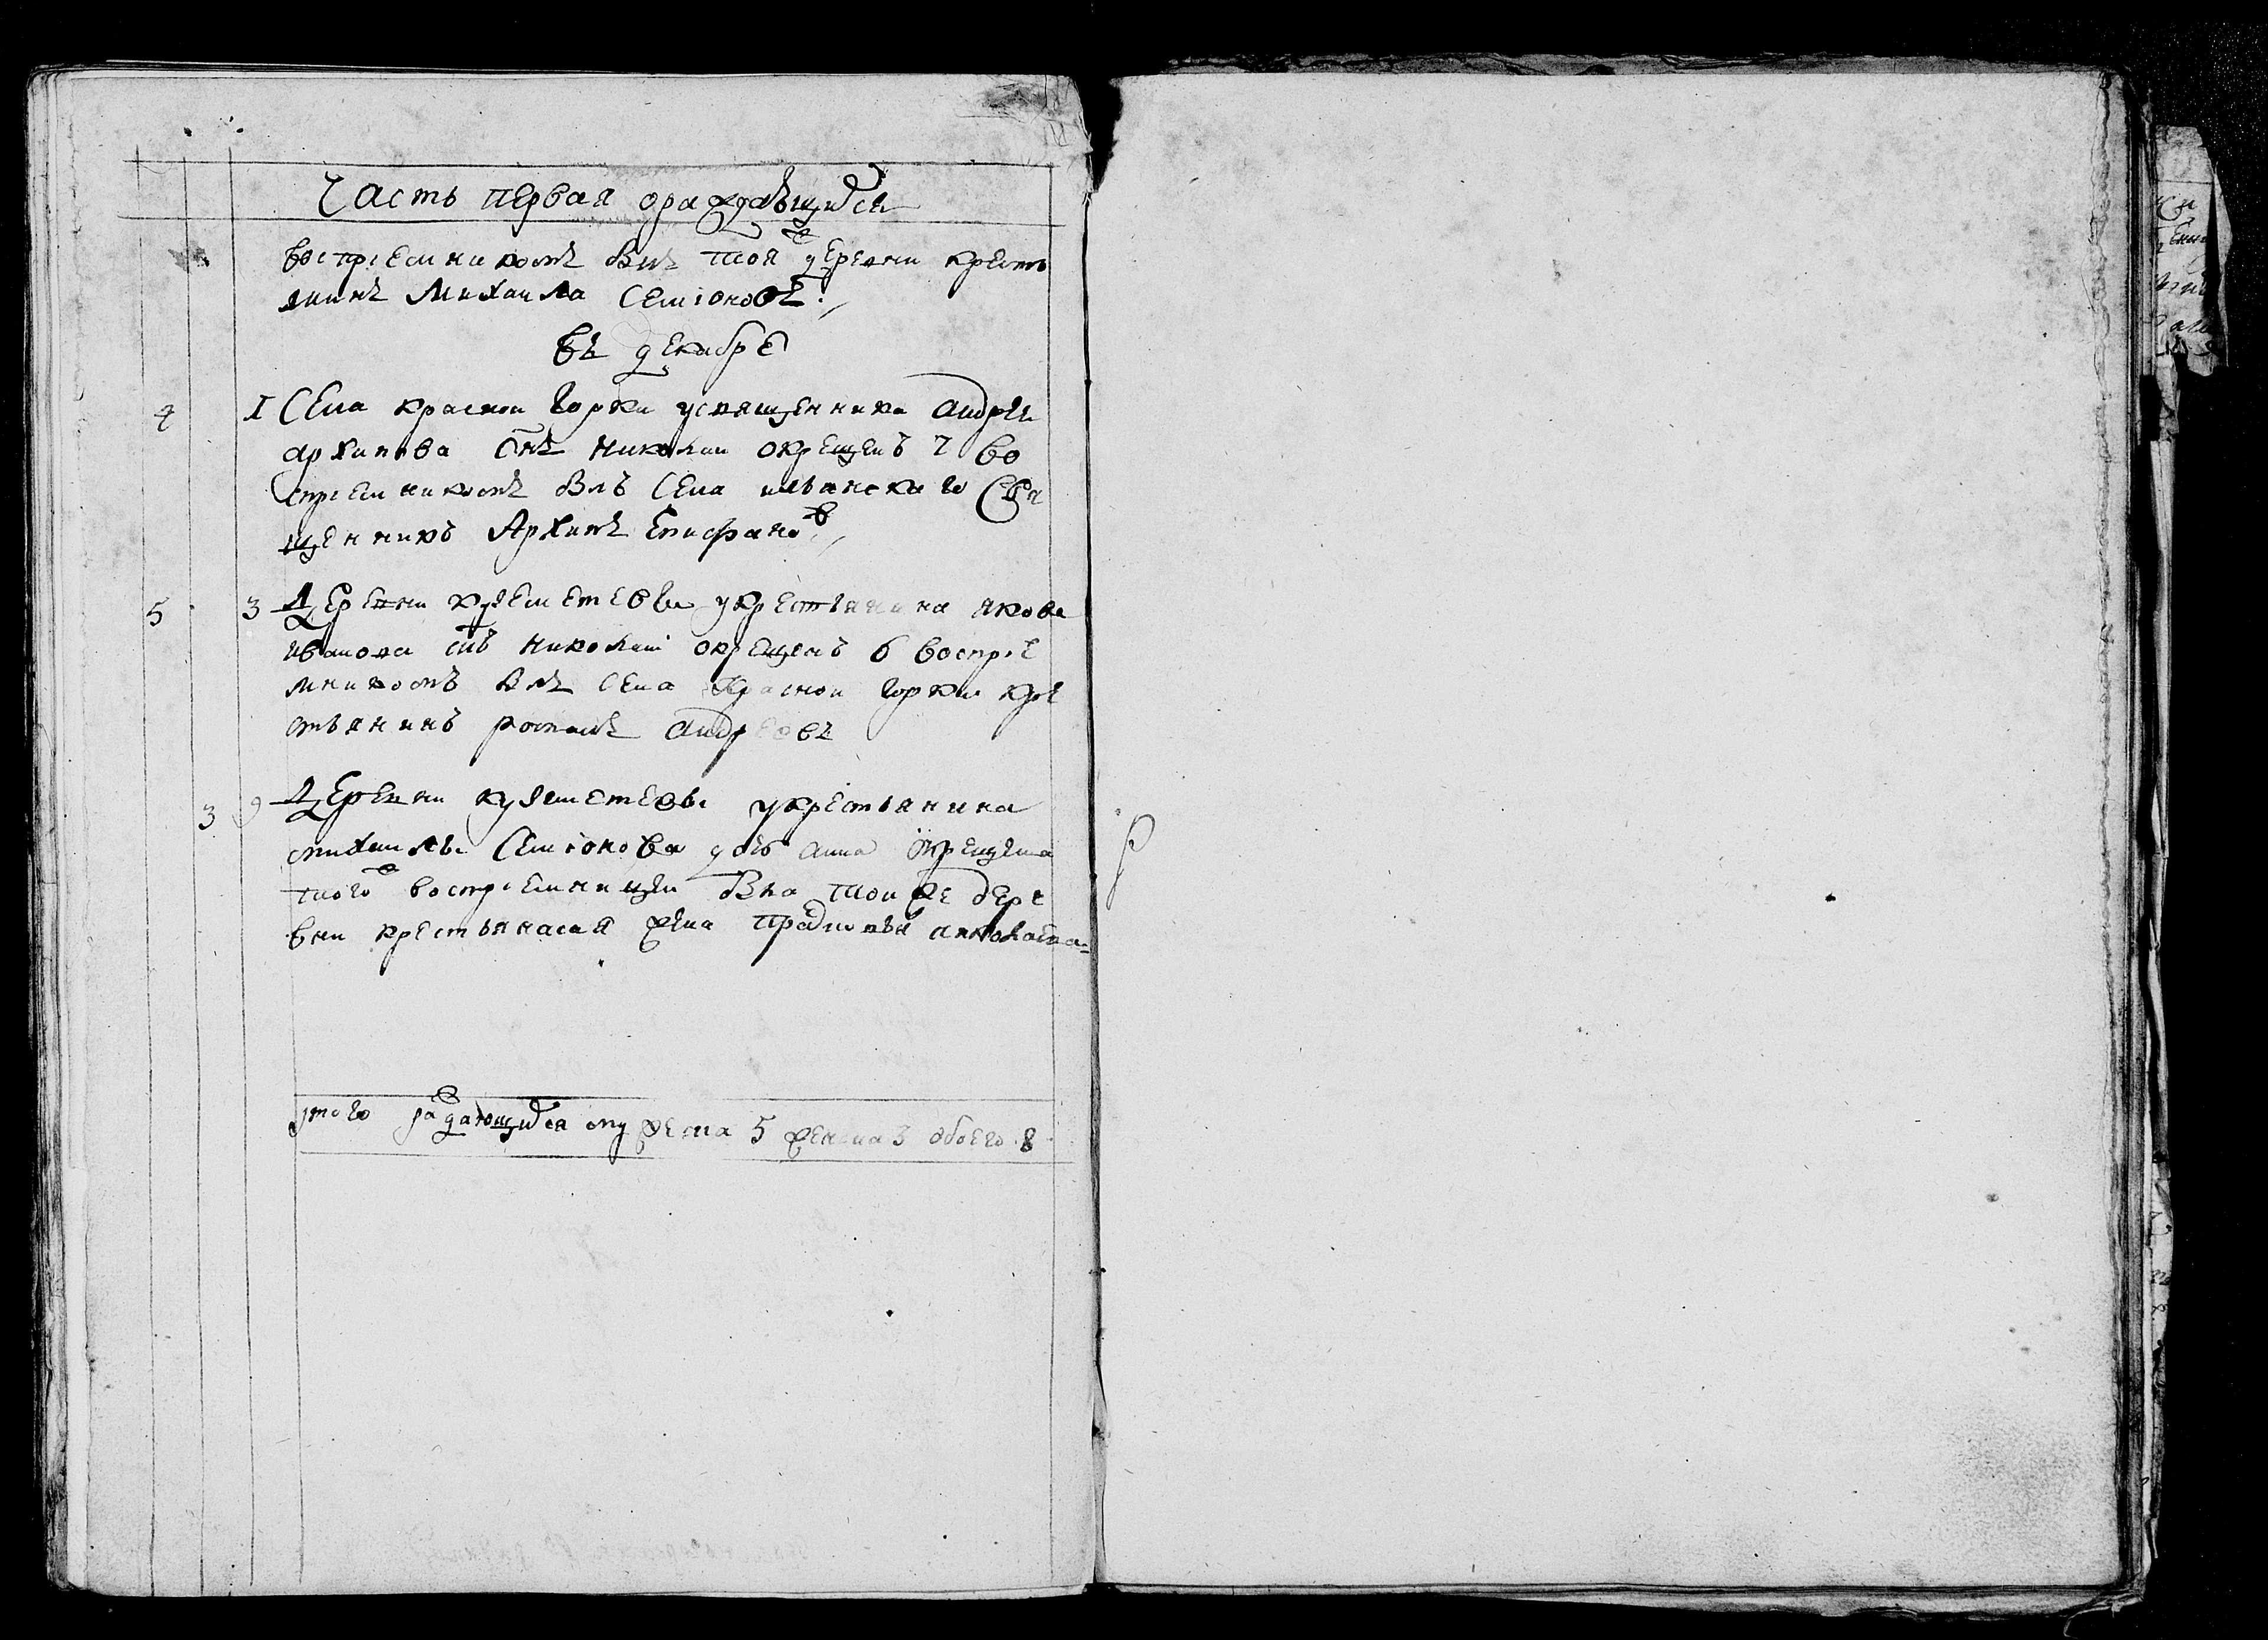 Часть первая ораждающихся
воспрiемникомъ былъ тоя ж деревни кресть
янинъ Михаила Семiоновъ
въ декабре
4 1 Села красной горки у священника андрея
архипова снъ николаи окрещенъ 7 во
спрiемникомъ былъ села ильинскаго свя
щенникъ Архипъ Епифановъ
5 3 Деревни у крестьянина якова
иванова снъ николаи окрещенъ 6 воспрiе
мникомъ былъ села красной горки кре
стьянинъ романъ андреевъ
3 9 Деревни у крестьянина
михаилы Семiонова дочь анна окрещена
того ж воспрiемницеи была тои же дере
вни крестьянская жена
итого раждающихся мужеска 5 женска 3 обоего 8